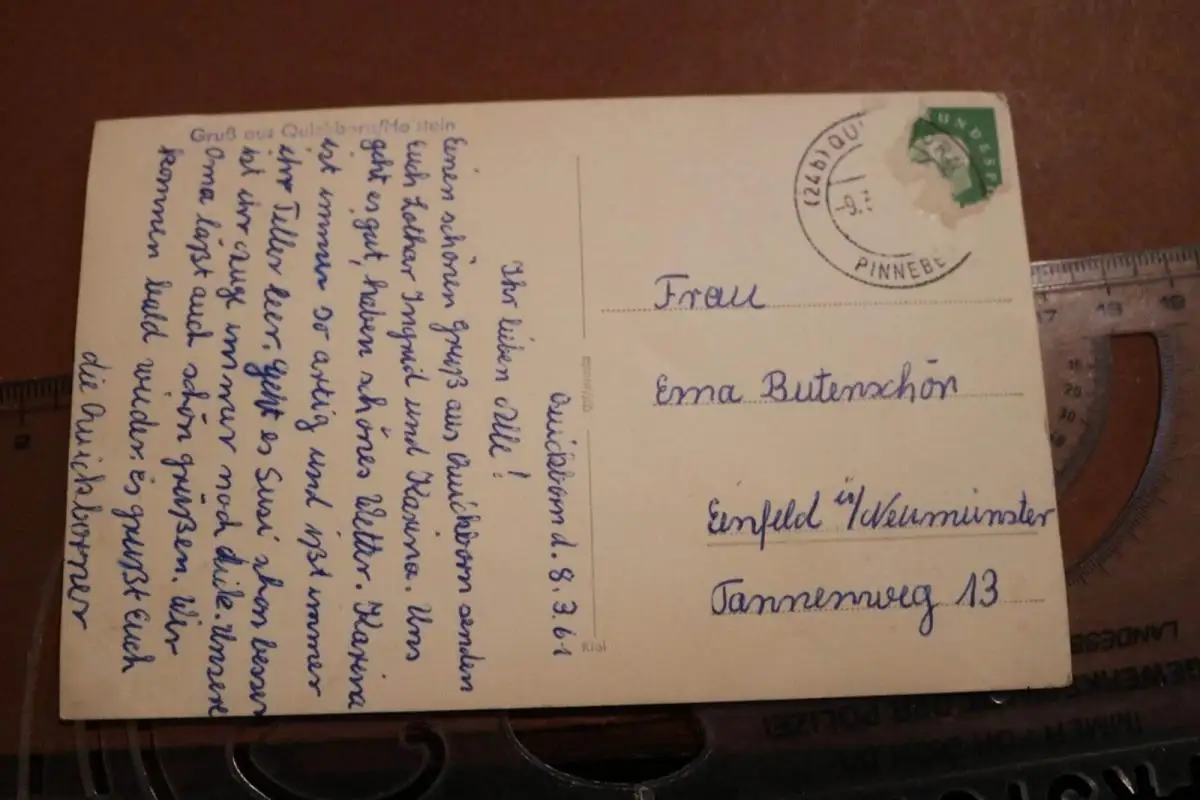 Gruß aus Quickborn/Holstein
Quickborn d. 8.3.61
Ihr lieben Alle!
Einen schönen Gruß aus Quickborn senden
Euch Lothar Ingrid und Karina. Uns
geht es gut, haben schönes Wetter. Karina
ist immer so artig und ißt immer
ihr Teller leer. Geht es Susi schon besser
ist ihr Auge immer noch dick. Unsere
Oma läßt auch schön grüßen. Wir
kommen bald wieder. Es grüßt Euch
die Quickborner
(24b) QUI
PINNEBE
UNDESP
Frau
Erna Butenschön
Einfeld ü/Neumünster
Tannenweg 13
17 18 19
10
20
30
LANDESBE
GEWERKSCHAFT DER POLIZEI
IMMER FÜR